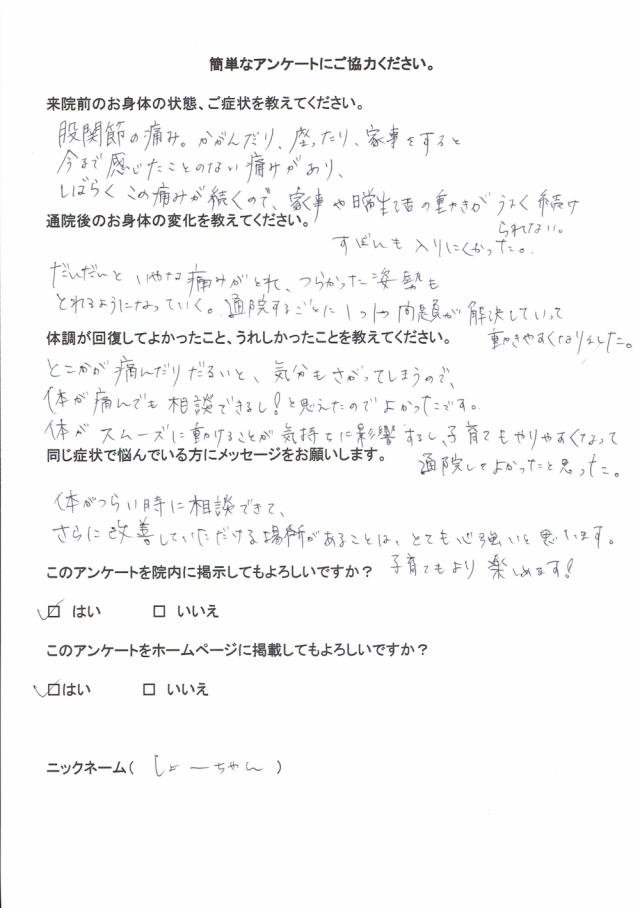 簡単なアンケートにご協力ください。
来院前のお身体の状態、ご症状を教えてください。
股関節の痛み。かがんだり、座ったり、家事をすると
今まで感じたことのない痛みがあり、
しばらくこの痛みが続くので、家事や日常生活の動きがうまく続け
られない。
通院後のお身体の変化を教えてください。
ずぼんも入りにくかった。
だんだんといやな痛みがとれ、つらかった姿勢も
とれるようになっていく。通院するごとに1つ1つ問題が解決していって
動きやすくなりました。
体調が回復してよかったこと、うれしかったことを教えてください。
どこかが痛んだりだるいと、気分もさがってしまうので、
体が痛んでも相談できるし!と思えたのでよかったです。
体がスムーズに動けることが気持ちに影響するし、子育てもやりやすくなって
通院してよかったと思った。
同じ症状で悩んでいる方にメッセージをお願いします。
体がつらい時に相談できて、
さらに改善していただける場所があることは、とても心強いと思います。
子育てもより楽しめます!
このアンケートを院内に掲示してもよろしいですか?
☑ はい □ いいえ
このアンケートをホームページに掲載してもよろしいですか?
☑はい □ いいえ
ニックネーム( しょーちゃん )